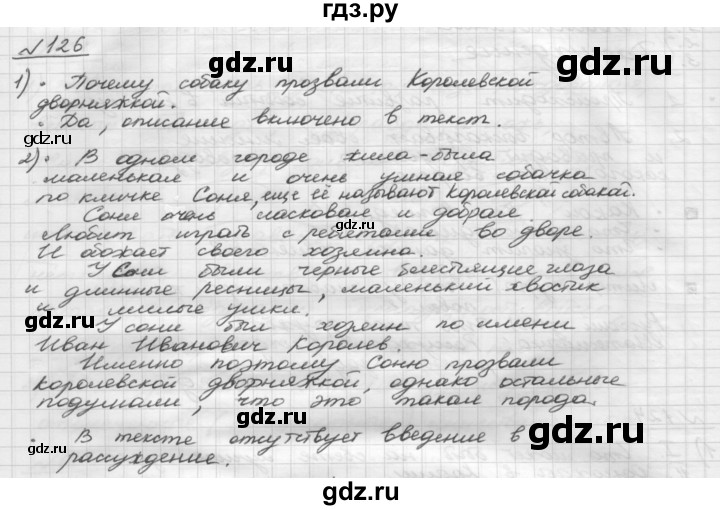 гдз.ру
№126
1) • Почему собаку прозвали Королевской
дворняжкой.
• Да, описание включено в текст.
2) • В одном городе жила-была
маленькая и очень умная собачка
по кличке Соня, еще её называют Королевской собакой.
Соня очень ласковая и добрая.
Любит играть с ребятами во дворе.
И обожает своего хозяина.
У Сони были черные блестящие глаза
и длинные ресницы, маленький хвостик
и милые ушки.
У Сони был хозяин по имени
Иван Иванович Королев.
Именно поэтому Соню прозвали
Королевской дворняжкой, однако остальные
подумали, что это такая порода.
• В тексте отсутствует введение в
рассуждение.
gdz.ru
gdz.ru
gdz.ru
gdz.ru
gdz.ru
gdz.ru
gdz.ru
gdz.ru
gdz.ru
gdz.ru
gdz.ru
gdz.ru
gdz.ru